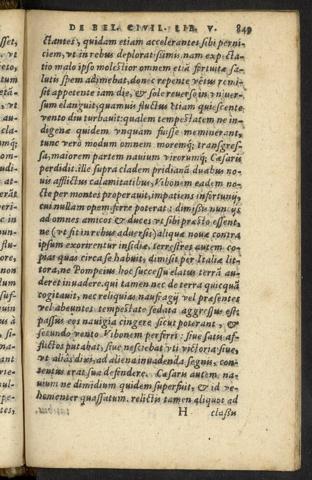 DE BEL. CIVIL. LIB. V. 849
ctantes, quidam etiam accelerantes sibi perni-
ciem, vt in rebus deploratissimis. nam expecta-
tio malo ipso molestior omnem etiã fortuitæ sa-
lutis spem adimebat, donec repente vẽtus remi-
sit appetente iam die, & sole reuerso in vniuer-
sum elanguit, quamuis fluctus etiam quiescente-
vento diu turbauit: qualem tempestatem ne in-
digenæ quidem vnquam fuisse meminerant,
tunc verò modum omnem moremq; transgres-
sa, maiorem partem nauium virorumq; Cæsaris
perdidit. ille supra cladem pridianã duabus no-
uis afflictus calamitatibus, Vibonem eadem no-
cte per montes properauit, impatiens infortunij,
cui nullam opem ferre poterat: dimissis nuncijs
ad omnes amicos & duces vt sibi præsto essent,
ne (vt fit in rebus aduersis) aliquæ nouæ contra
ipsum exorirentur insidiæ. terrestres autem co-
pias quas circa se habuit, dimisit per Italiæ lit-
tora, ne Pompeius hoc successu elatus terrã au-
deret inuadere. qui tamen nec de terra quicquã
cogitauit, nec reliquias naufragij vel præsentes
vel abeuntes tempestate sedata aggressus est:
passus eos nauigia cingere sicut poterant, &
secundo vento Vibonem perferri: siue satis af-
flictos putabat, siue nesciebat vti victoria: siue,
vt aliâs dixi, ad aliena inuadenda segnis, con-
tentus erat sua defendere. Cæsaris autem na-
uium ne dimidium quidem superfuit, & id ve-
homenter quassatum. relictis tamen aliquot ad
H classis